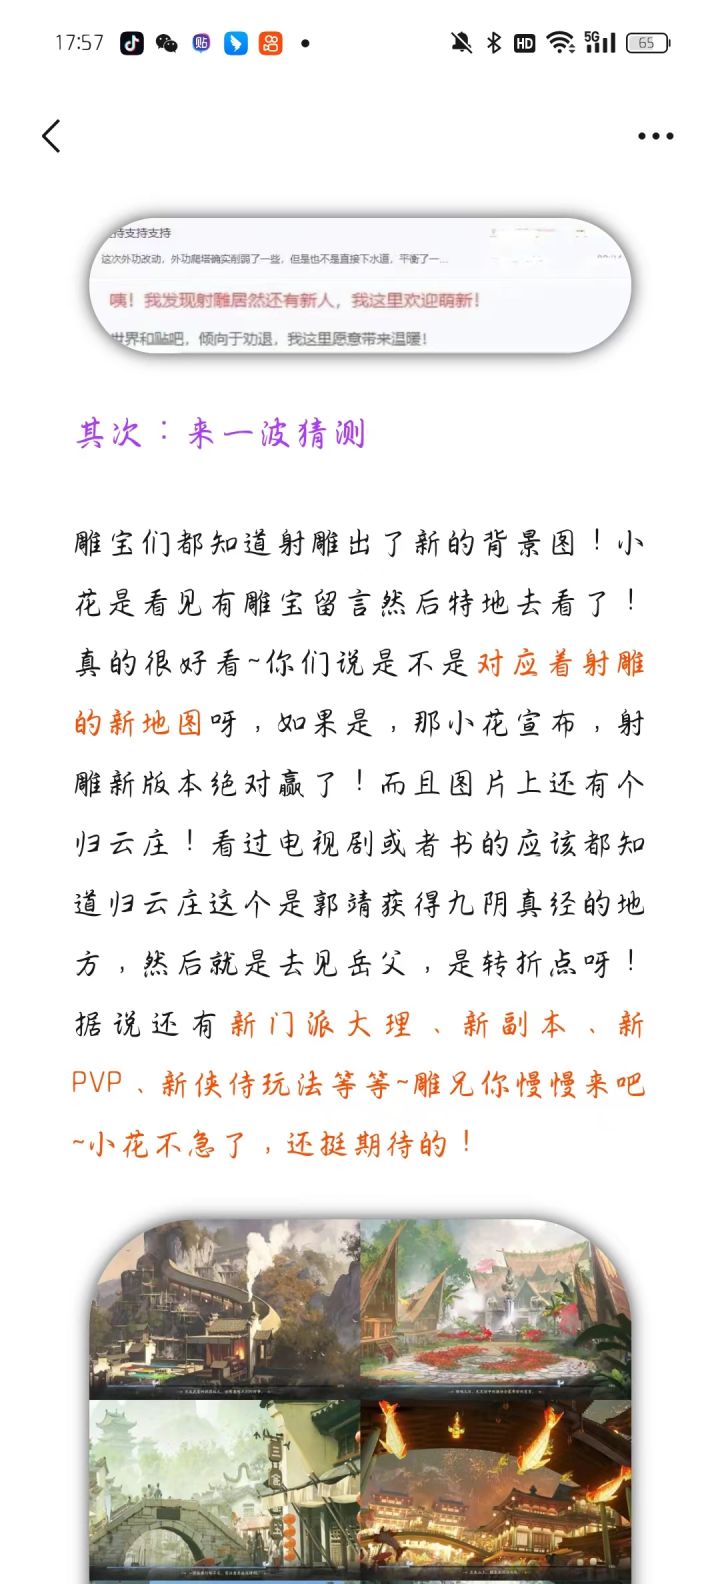 17:57
贴
HD
5G
65
持支持支持
这次外功改动，外功爬塔确实削弱了一些，但是也不是直接下水道，平衡了一...
咦！我发现射雕居然还有新人，我这里欢迎萌新！
世界和贴吧，倾向于劝退，我这里愿意带来温暖！
其次：来一波猜测
雕宝们都知道射雕出了新的背景图！小
花是看见有雕宝留言然后特地去看了！
真的很好看~你们说是不是对应着射雕
的新地图呀，如果是，那小花宣布，射
雕新版本绝对赢了！而且图片上还有个
归云庄！看过电视剧或者书的应该都知
道归云庄这个是郭靖获得九阴真经的地
方，然后就是去见岳父，是转折点呀！
据说还有新门派大理、新副本、新
PVP、新侠侍玩法等等~雕兄你慢慢来吧
~小花不急了，还挺期待的！